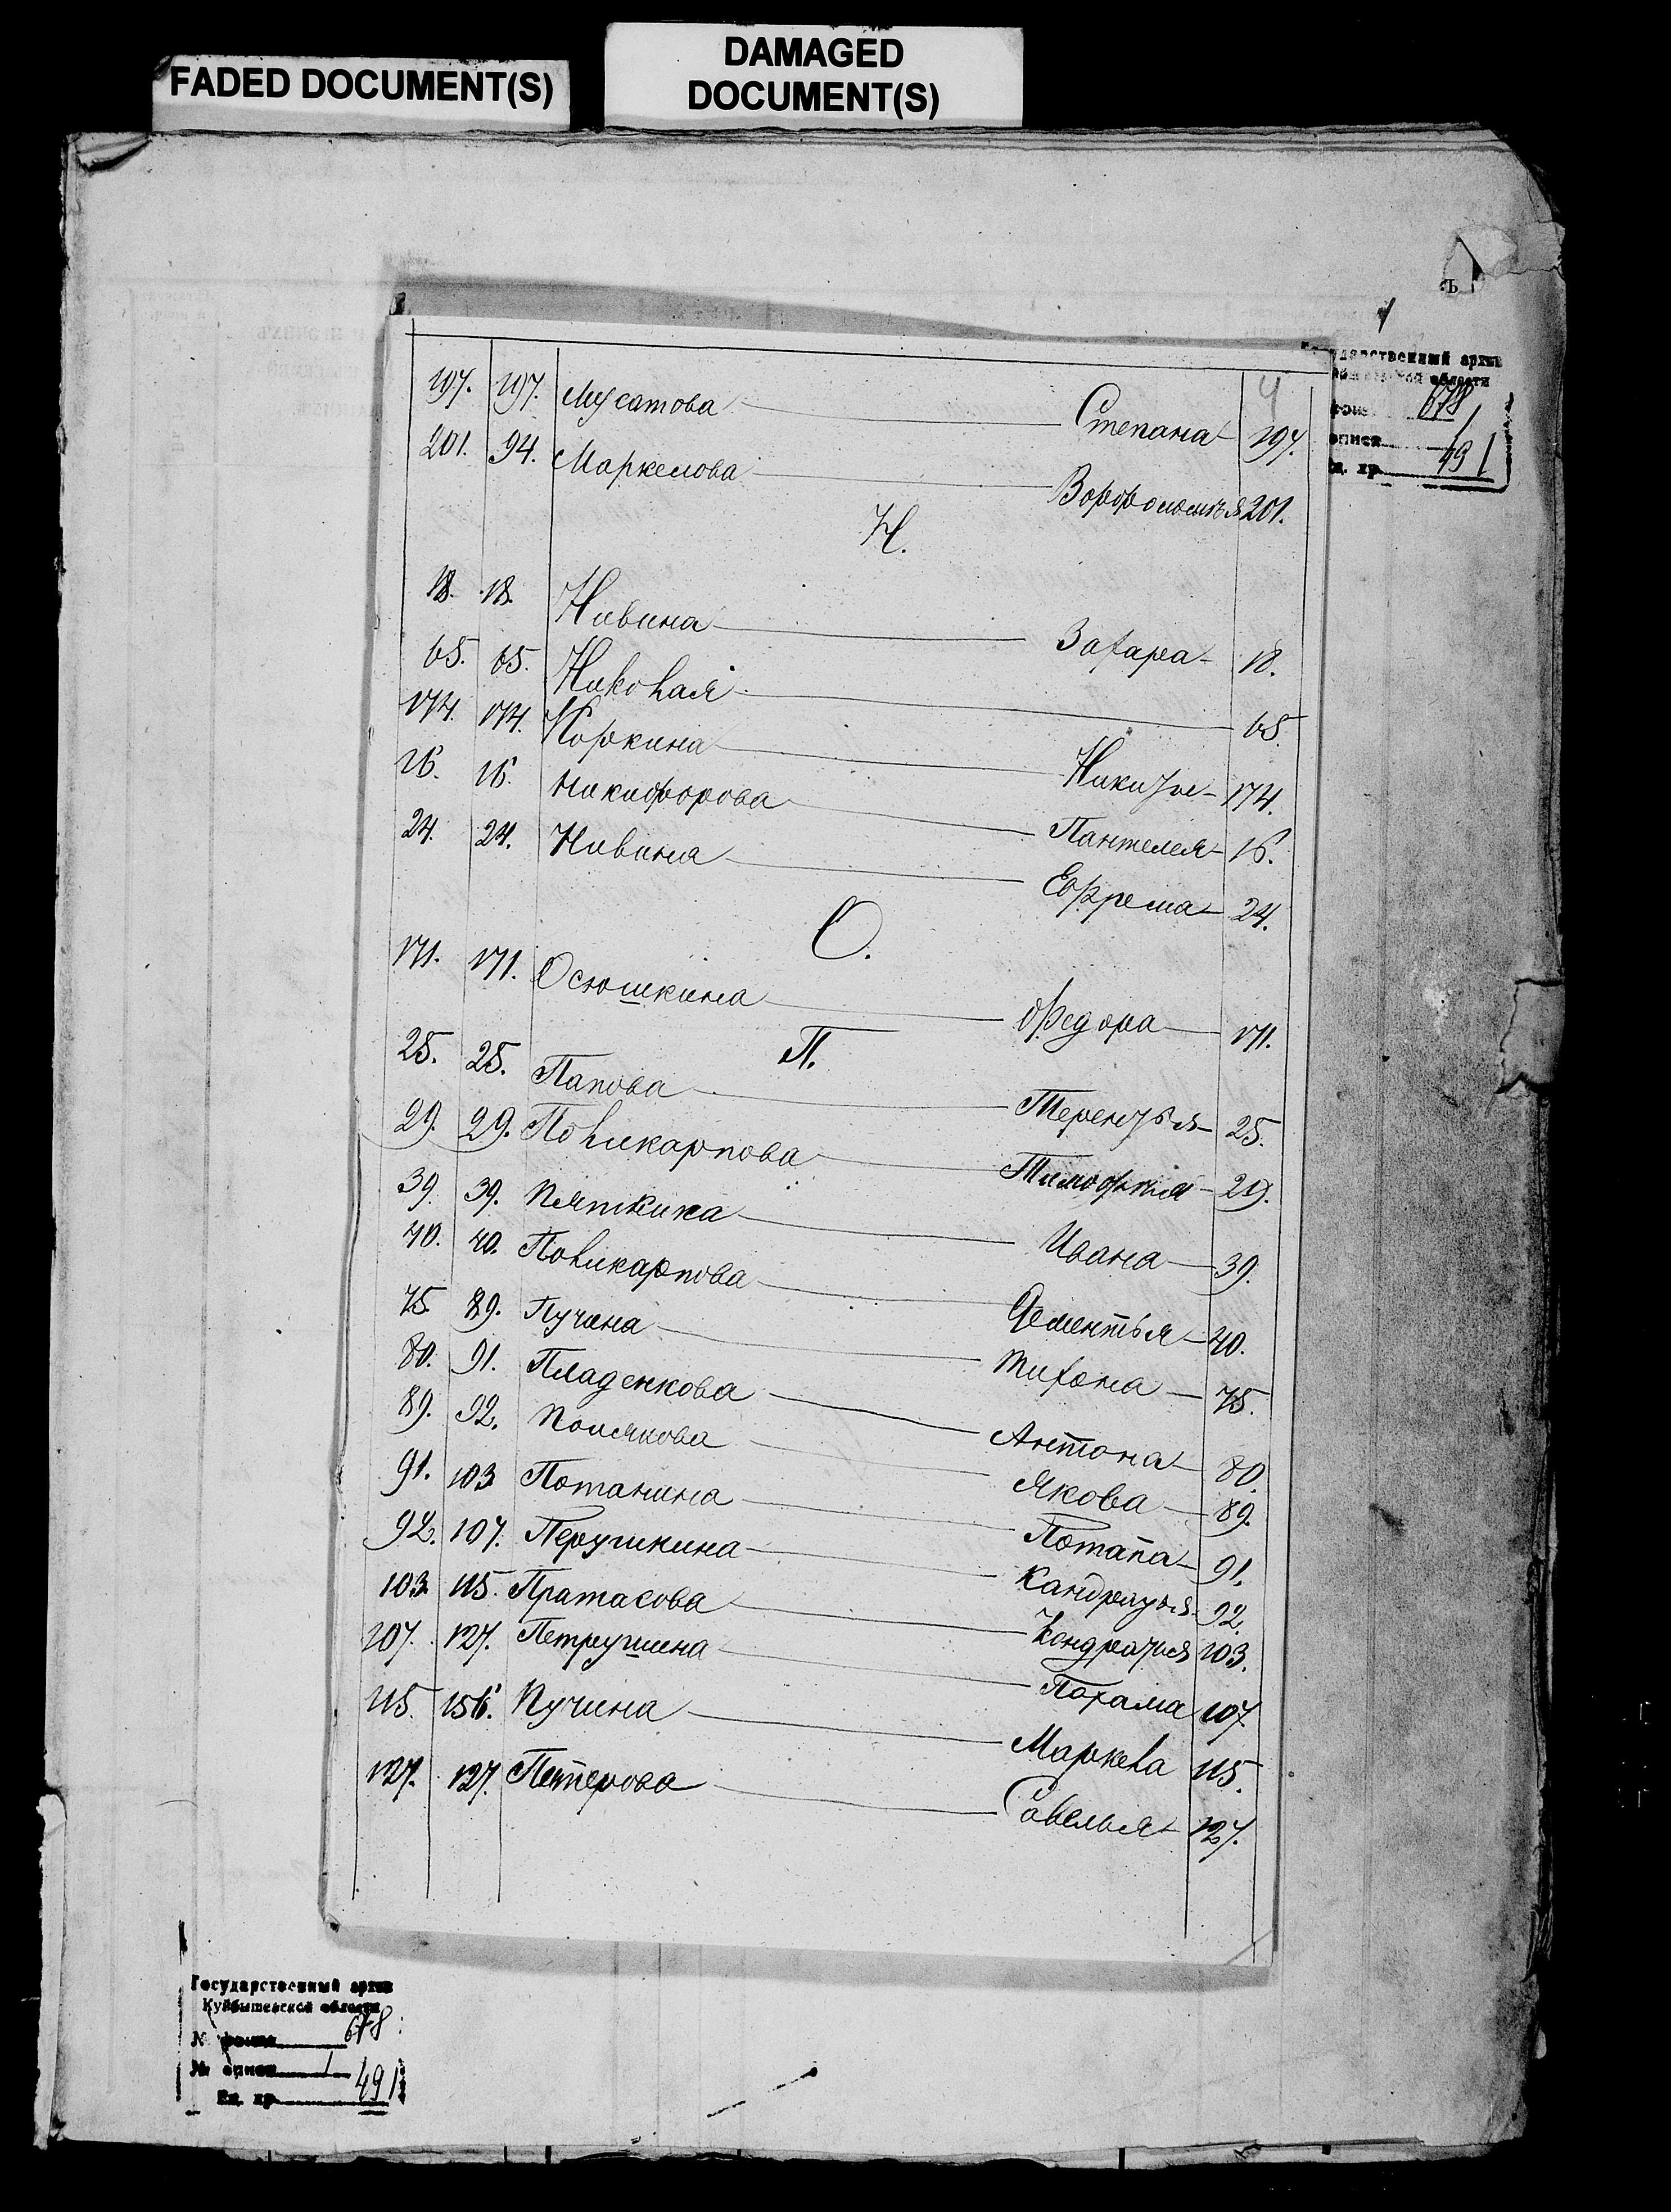 FADED DOCUMENT(S)
DAMAGED
DOCUMENT(S)
Ъ
Государственный архив
области
678
опися 1
Ед. хр. 491
4
197. 197. Мусатова Степана 197.
201. 94. Маркелова Варфоломѣя 201.
Н.
18. 18. Нивина Захара 18.
65. 65. Николая 65.
174. 174. Норкина Никиты 174.
16. 16. Никифорова Пантелея 16.
24. 24. Нивина Ефрема 24.
О.
171. 171. Осюшкина Федора 171.
П.
25. 25. Папова Терентья 25.
29. 29. Поликарпова Тимофѣя 29.
39. 39. Пяткина Ивана 39.
40. 40. Поликарпова Дементья 40.
75. 89. Пучина Тихона 75.
80. 91. Пладенкова Антона 80.
89. 92. Полякова Якова 89.
91. 103 Потанина Потапа 91.
92. 107. Перушкина Кандратья 92.
103 115. Пратасова Кондратья 103.
107. 127. Петрушина 107
115. 156. Пучина Маркела 115.
127. 127. Петерова Савелья 127.
Государственный архив
Куйбышевской области
№ фонда 678
№ описи 1
Ед. хр. 491